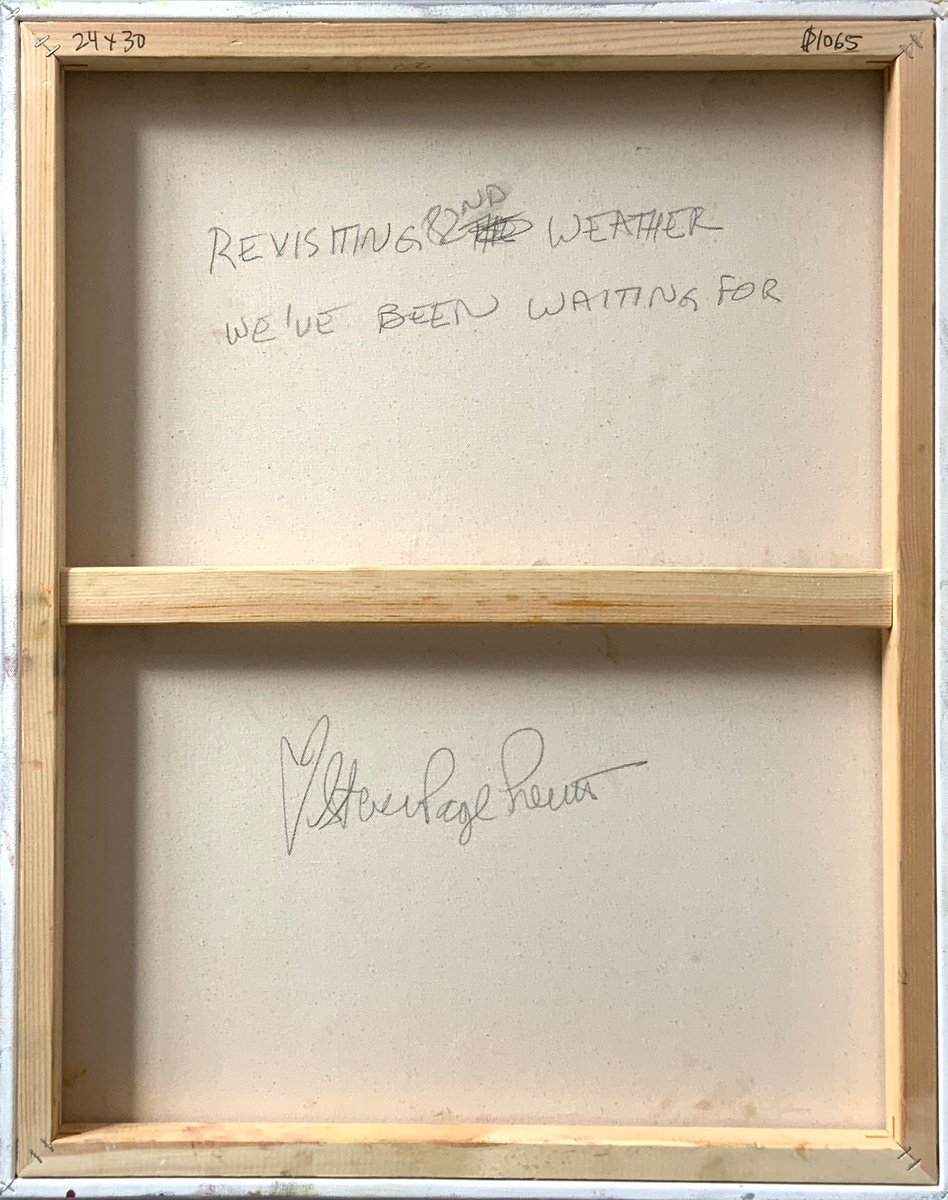 24x30
$1065
REVISITING 82ND WEATHER
WE'VE BEEN WAITING FOR
Page